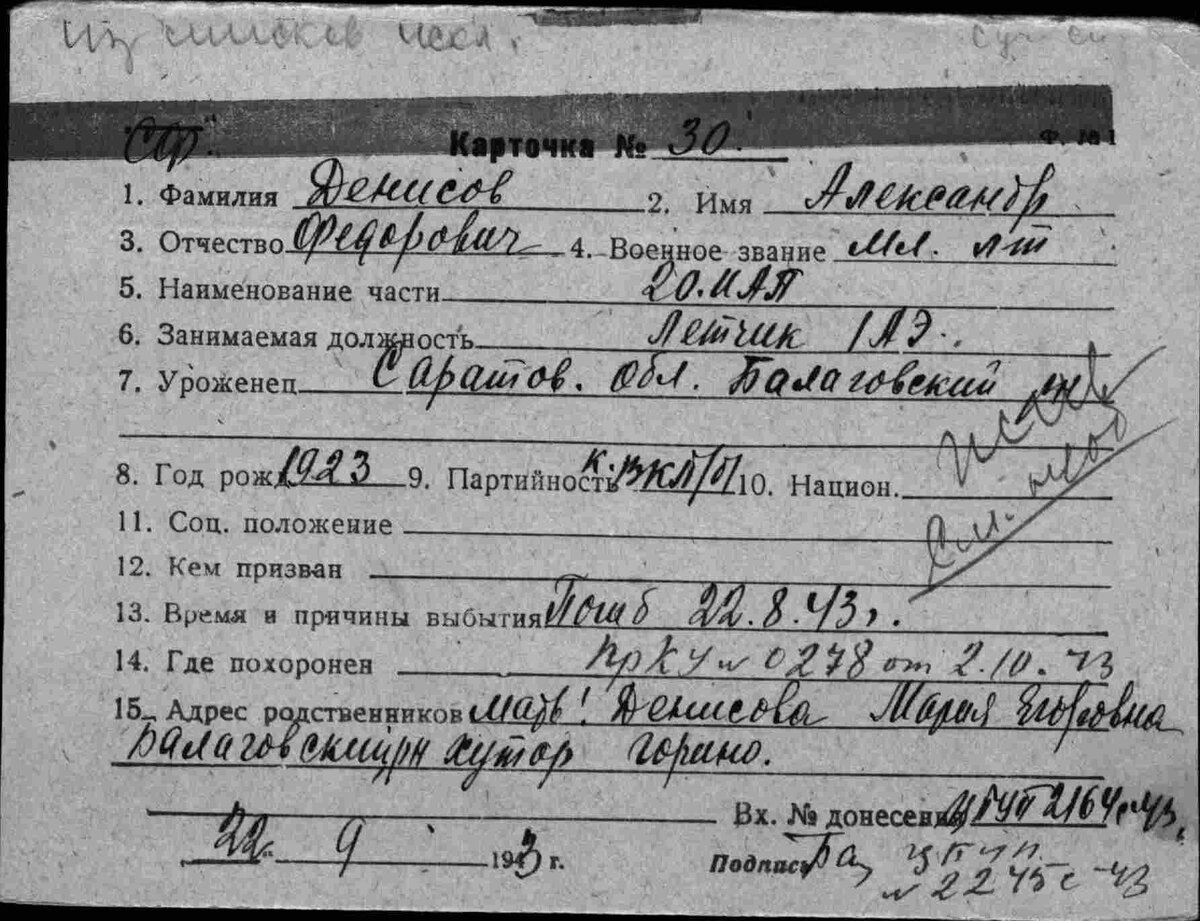 Из списков искл.
Карточка № 30. Ф. № 1
1. Фамилия Денисов 2. Имя Александр
3. Отчество Федорович 4. Военное звание Мл. лт
5. Наименование части 20.ИАП
6. Занимаемая должность Летчик 1 АЭ.
7. Уроженец Саратов. Обл. Балаговский рн
искл
8. Год рожд 1923 9. Партийность к. ВКП/б/ 10. Национ.
См.
11. Соц. положение
12. Кем призван
13. Время и причины выбытия Погиб 22.8.43г.
14. Где похоронен Пр КУ № 0278 от 2.10.43
15. Адрес родственников Мать! Денисова Мария Егоровна
Балаговский рн хутор Горино.
Вх. № донесения ЦБУП 2164с 43.
22 9 1943 г. Подпись
№ 2245с 43